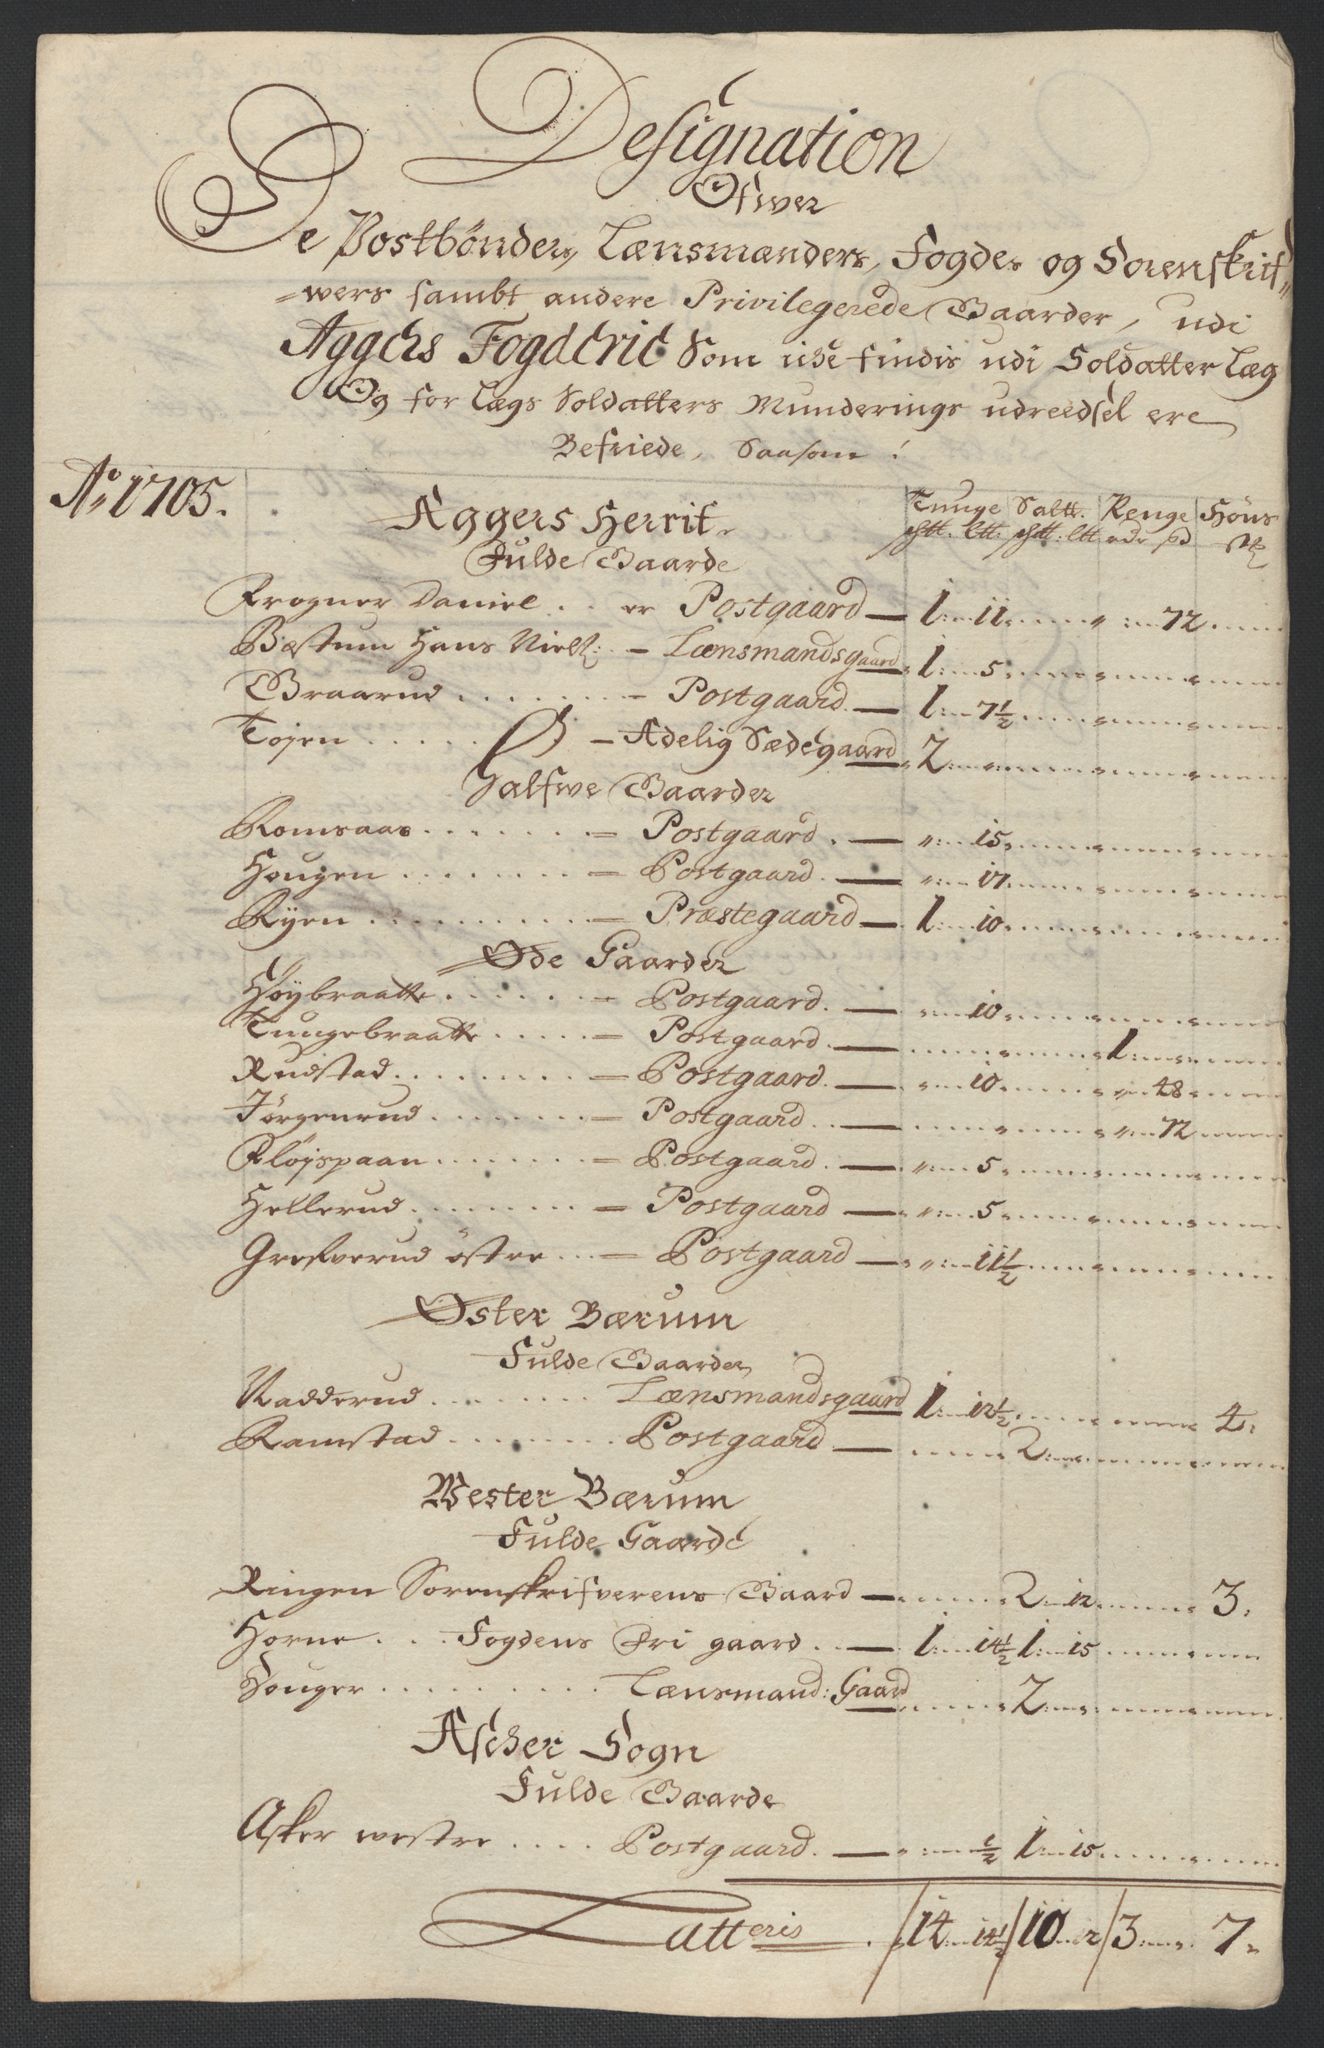 Designation
Ofwer
De Postbönder, Lænsmænders, Fogdes og Sorenskrif-
-wers sambt andere Privilegerede Gaarder, udi
Aggers Fogderie Som icke findis udi Soldatter Læg
Og for Lægs Soldatters Munderings udreedsel ere
Befriede, Saasom:
Ao 1705.
Aggers Herrit.
Tunge Saltt. Penge Höns
sktt. ltt. sktt. ltt rdr sd
Fulde Gaarde
Frogner Daniel .. er Postgaard — 1 .. 11 .. „ .. 72
Bæstum Hans Niels: — Lænsmandsgaard 1 .. 5
Braarud . . . . . — Postgaard — 1 .. 7½
Töyen . . . . . — Adelig Sædegaard 2
Halfwe Gaarder
Romsaas . . . . . — Postgaard . — „ .. 15
Hougen . . . . . — Postgaard . — „ .. 17
Ryen . . . . . — Præstegaard — 1 .. 10
Øde Gaarder
Höybraatte . . . . . — Postgaard . — „ .. 10
Tungebraatte . . . . . — Postgaard . — 1
Rudstad . . . . . — Postgaard . — „ .. 10 .. „ .. 48
Jörgenrud . . . . . — Postgaard . . — „ .. 72
Flöyspaan . . . . . — Postgaard . — „ .. 5
Hellerud . . . . . — Postgaard — „ .. 5
Grefverud östre . . . — Postgaard — „ .. 11½
Øster Bærum
Fulde Gaarder
Nadderud . . . . . Lænsmandsgaard 1 .. 12½ .. 4:
Ramstad . . . . . Postgaard — 2
Wester Bærum
Fulde Gaarde
Ringen Sorenskrifverens Gaard — 2 .. 12 .. 3:
Horne . . . Fogdens Fri gaard . . — 1 .. 14½ 1 .. 15
Houger . . . . . Lænsmand: Gaard 2
Ascher Sogn
Fulde Gaarde
Asker westre . . . . Postgaard . — „ .. ½ 1 .. 15
Latteris . 14 .. 14½ / 10 .. 2 / 3 .. 7